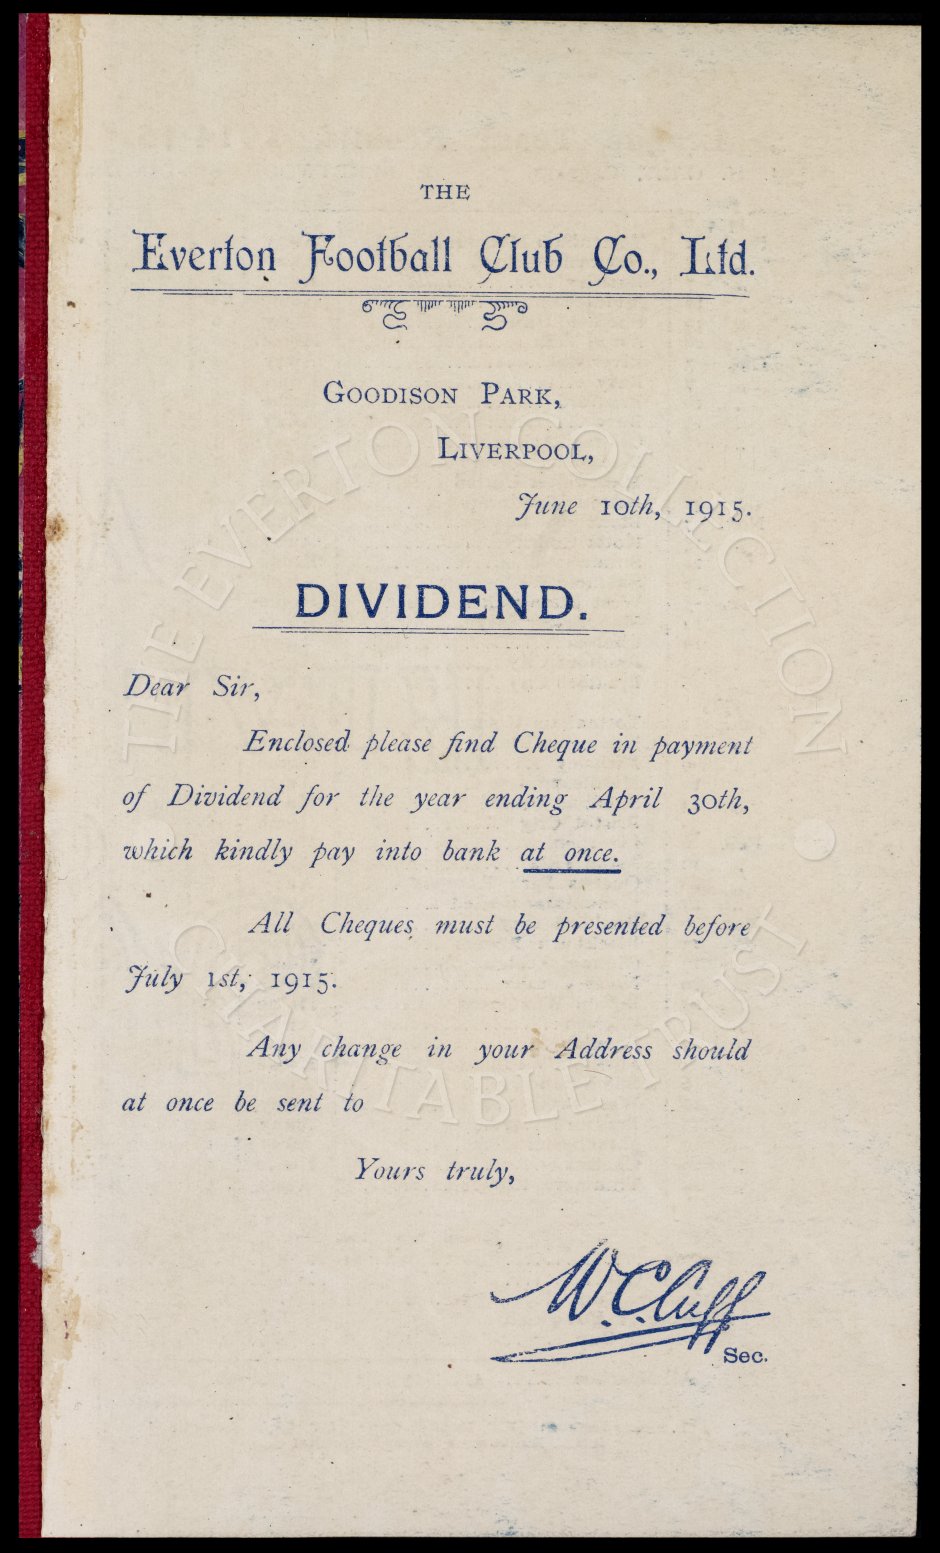 THE
Everton Football Club Co., Ltd.
GOODISON PARK,
LIVERPOOL,
June 10th, 1915.
DIVIDEND.
Dear Sir,
Enclosed please find Cheque in payment
of Dividend for the year ending April 30th,
which kindly pay into bank at once.
All Cheques must be presented before
July 1st, 1915.
Any change in your Address should
at once be sent to
Yours truly,
W. C. Cuff
Sec.
THE EVERTON COLLECTION
CHARITABLE TRUST